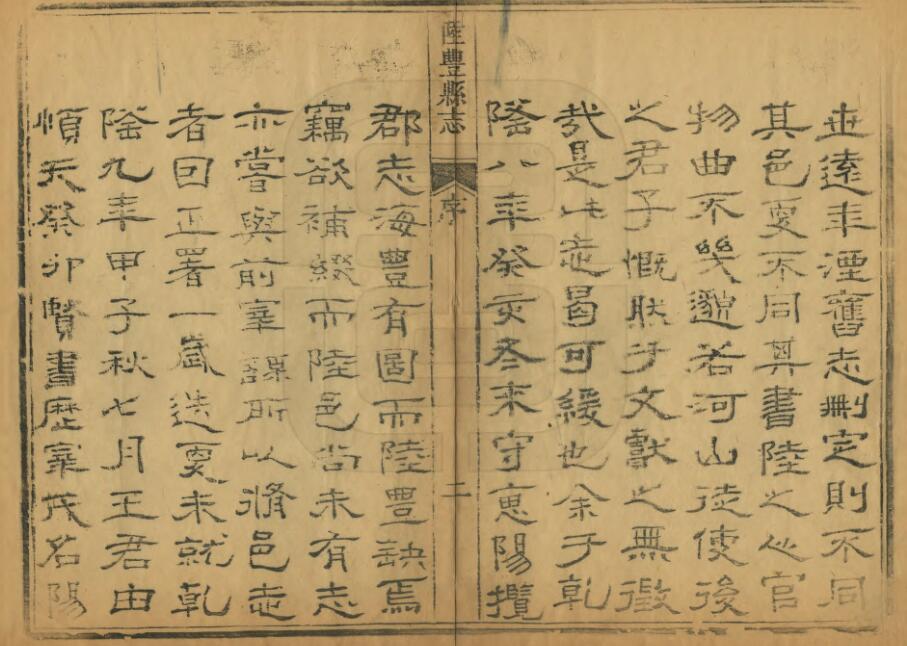 世遠年湮舊志刪定則不同
其邑更不同其書陸之人官
物曲不幾邈若河山徒使後
之君子慨然于文獻之無徵
哉是此志曷可緩也余于乾
隆八年癸亥冬來守惠陽攬
陸豐縣志 序 二
郡志海豐有圖而陸豐缺焉
竊欲補綴而陸邑尚未有志
亦嘗與前宰謀所以脩邑志
者因正署一歲迭更未就乾
隆九年甲子秋七月王君由
順天癸卯賢書歷宰茂名陽